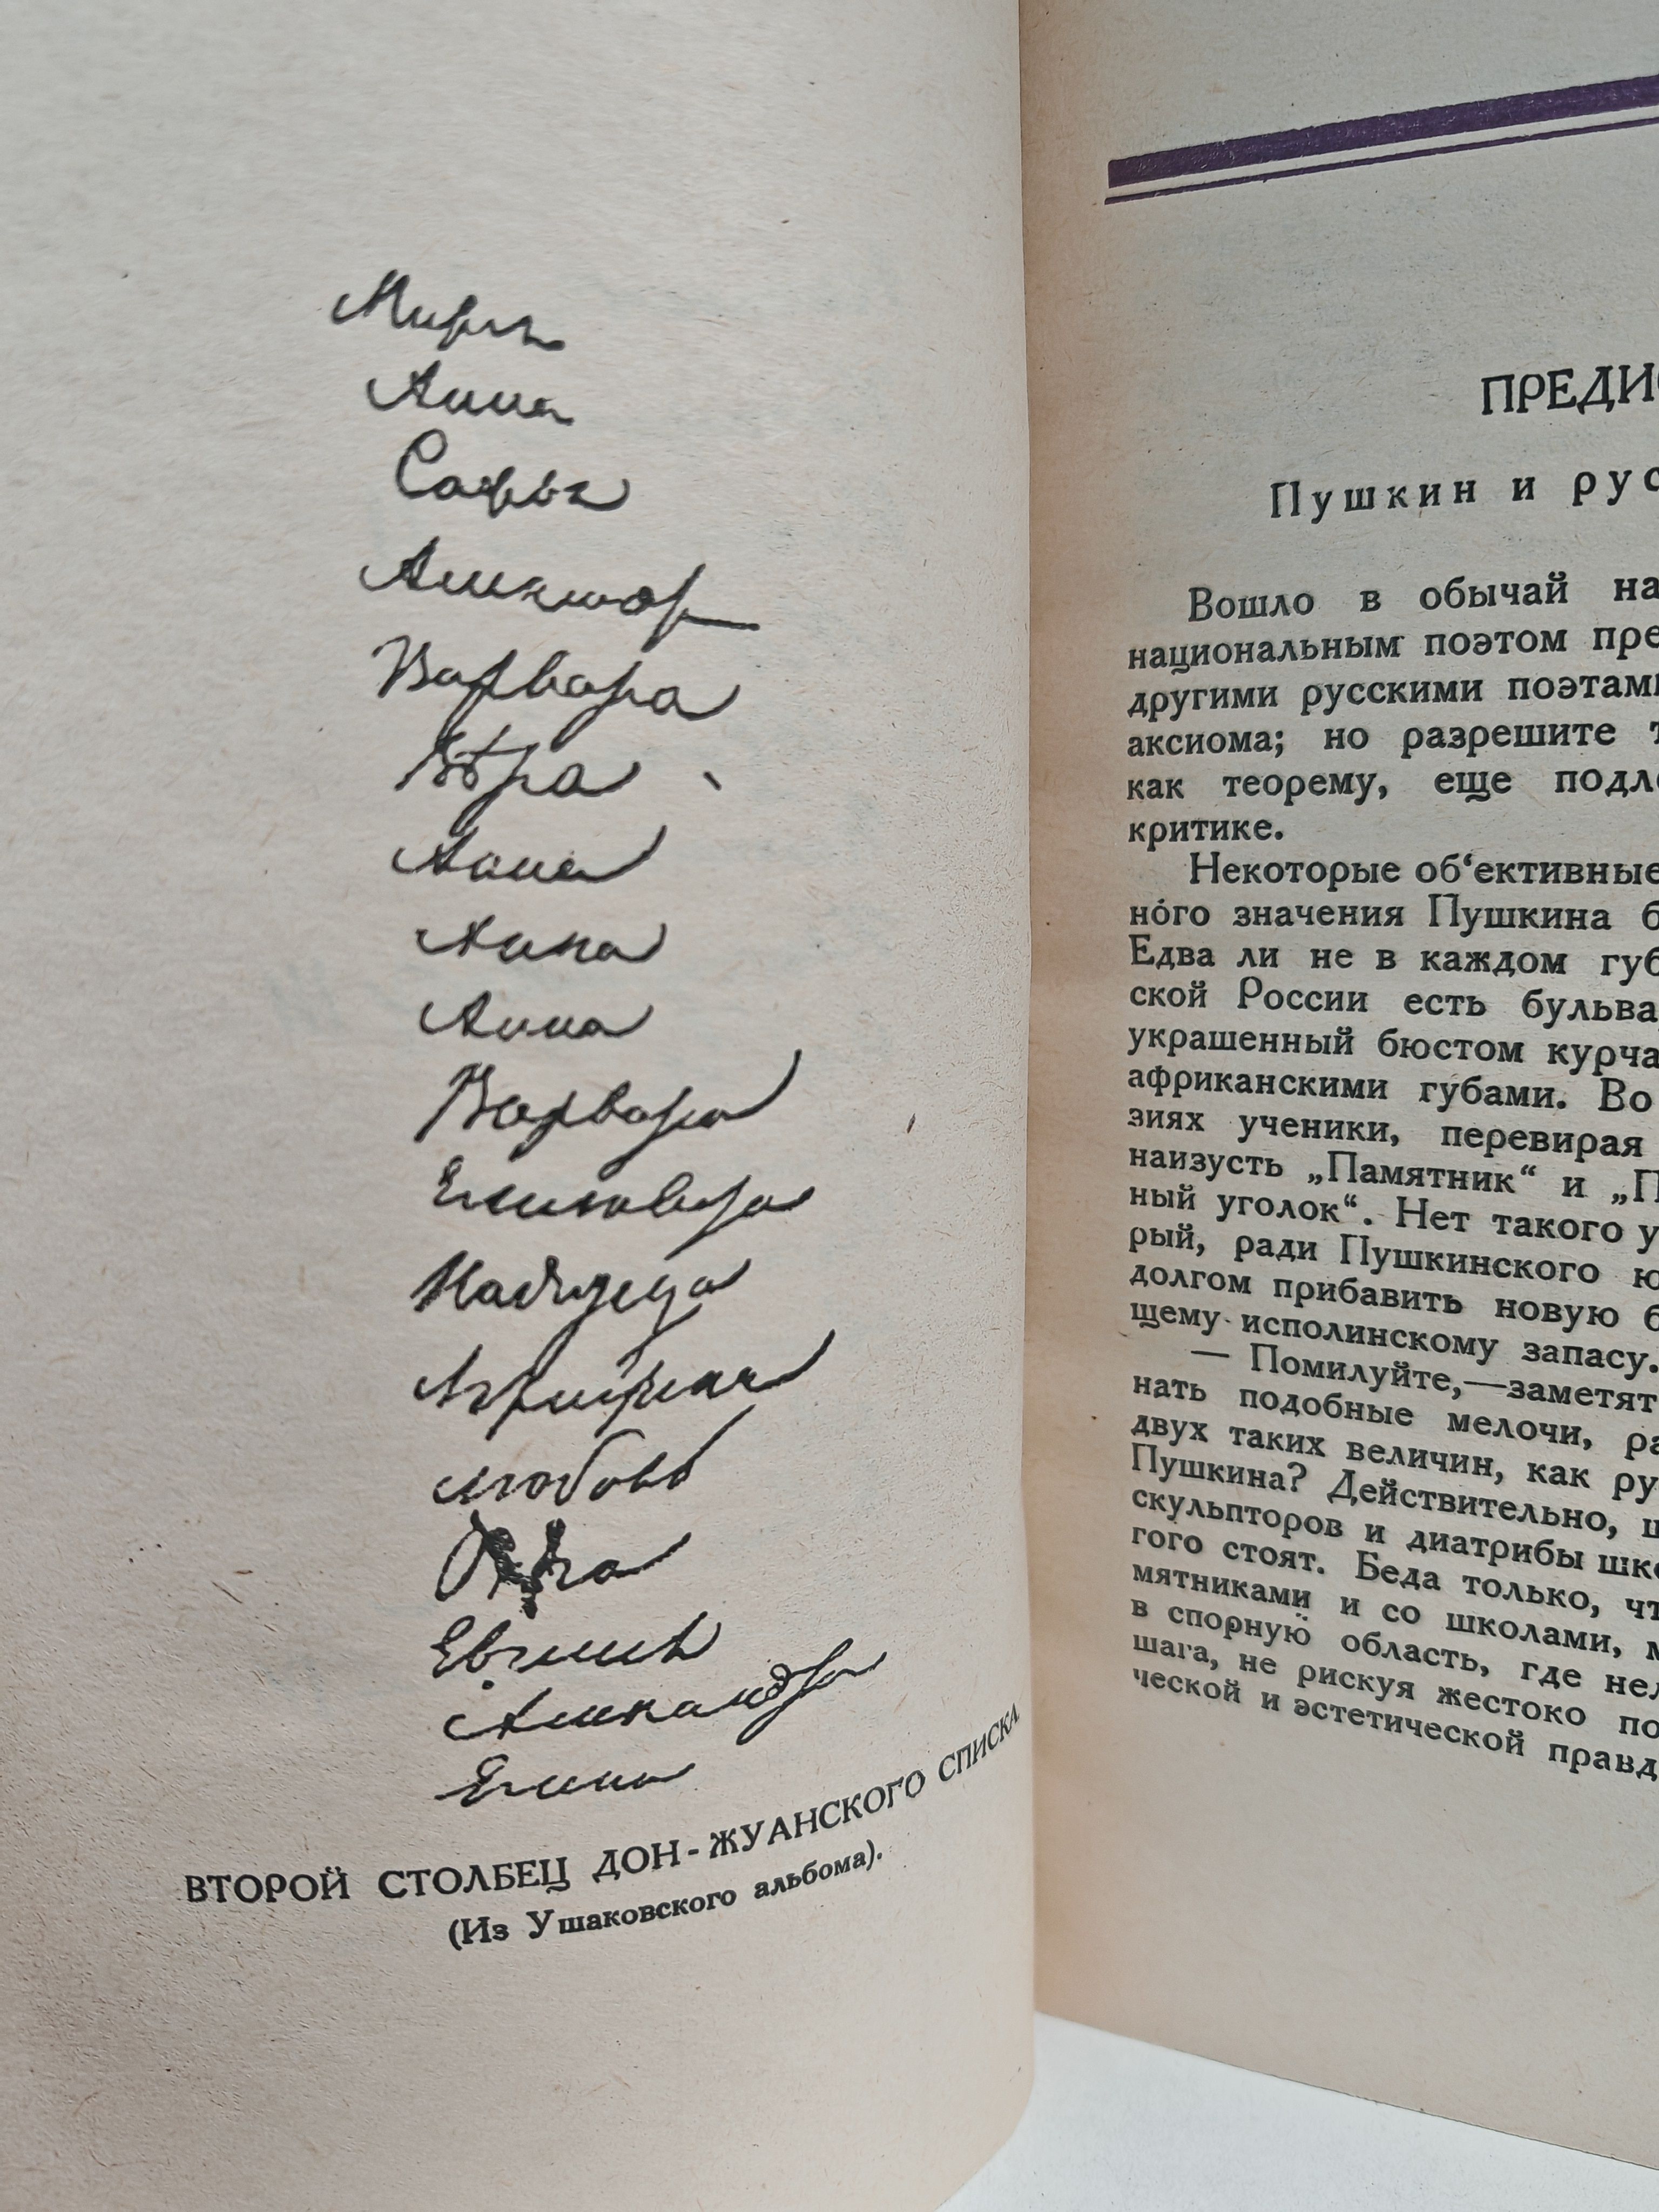 Мария
Анна
Софья
Александр
Варвара
Вѣра
Анна
Анна
Анна
Варвара
Елизавета
Надежда
Аграфена
Любовь
Ольга
Евгения
Александра
Елена
ВТОРОЙ СТОЛБЕЦ ДОН-ЖУАНСКОГО СПИСКА
(Из Ушаковского альбома).
ПРЕДИ
Пушкин и рус
Вошло в обычай на
национальным поэтом пре
другими русскими поэтам
аксиома; но разрешите т
как теорему, еще подл
критике.
Некоторые об‘ективные
но́го значения Пушкина б
Едва ли не в каждом губ
ской России есть бульва
украшенный бюстом курча
африканскими губами. Во
зиях ученики, перевирая
наизусть „Памятник“ и „П
ный уголок“. Нет такого у
рый, ради Пушкинского ю
долгом прибавить новую б
щему исполинскому запасу.
— Помилуйте,—заметят
нать подобные мелочи, ра
двух таких величин, как ру
Пушкина? Действительно, ш
скульпторов и диатрибы шк
гого стоят. Беда только, чт
мятниками и со школами, м
в спорную область, где нел
шага, не рискуя жестоко по
ческой и эстетической правд